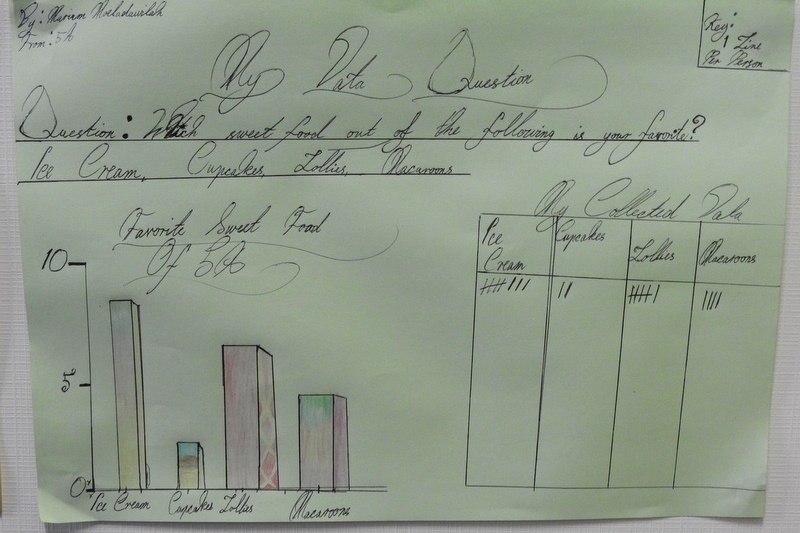 By: Mariam
From: 5A
Key:
1 Line
Per Person
My Data Question
Question: Which sweet food out of the following is your favorite?
Ice Cream, Cupcakes, Lollies, Macaroons
Favorite Sweet Food
Of 5A
10
5
0
Ice Cream Cupcakes Lollies Macaroons
My Collected Data
Ice Cream
Cupcakes
Lollies
Macaroons